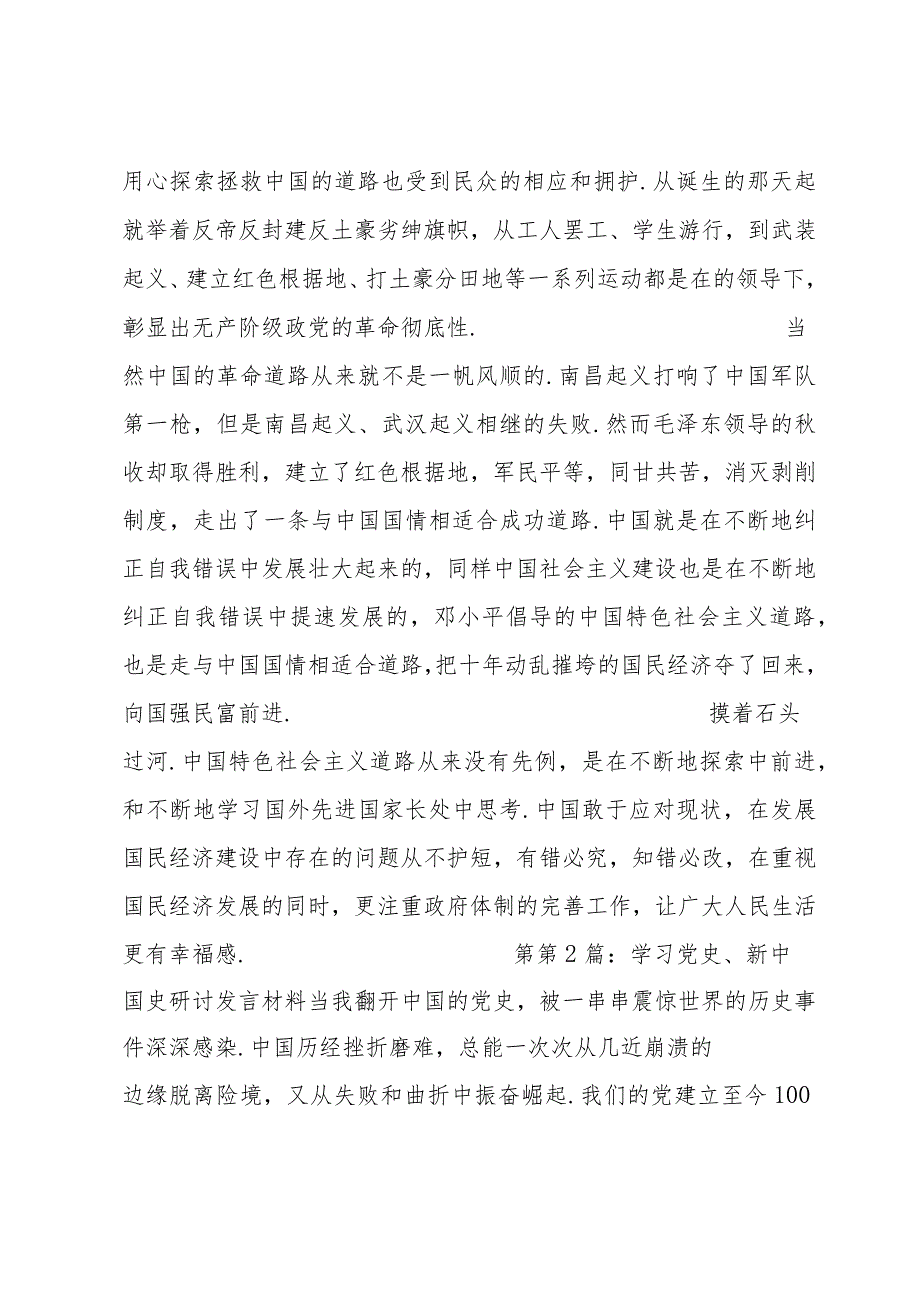 用心探索拯救中国的道路也受到民众的相应和拥护.从诞生的那天起
就举着反帝反封建反土豪劣绅旗帜，从工人罢工、学生游行，到武装
起义、建立红色根据地、打土豪分田地等一系列运动都是在的领导下，
彰显出无产阶级政党的革命彻底性. 当
然中国的革命道路从来就不是一帆风顺的.南昌起义打响了中国军队
第一枪，但是南昌起义、武汉起义相继的失败.然而毛泽东领导的秋
收却取得胜利，建立了红色根据地，军民平等，同甘共苦，消灭剥削
制度，走出了一条与中国国情相适合成功道路.中国就是在不断地纠
正自我错误中发展壮大起来的，同样中国社会主义建设也是在不断地
纠正自我错误中提速发展的，邓小平倡导的中国特色社会主义道路，
也是走与中国国情相适合道路，把十年动乱摧垮的国民经济夺了回来，
向国强民富前进. 摸着石头
过河.中国特色社会主义道路从来没有先例，是在不断地探索中前进，
和不断地学习国外先进国家长处中思考.中国敢于应对现状，在发展
国民经济建设中存在的问题从不护短，有错必究，知错必改，在重视
国民经济发展的同时，更注重政府体制的完善工作，让广大人民生活
更有幸福感. 第第2篇：学习党史、新中
国史研讨发言材料当我翻开中国的党史，被一串串震惊世界的历史事
件深深感染.中国历经挫折磨难，总能一次次从几近崩溃的
边缘脱离险境，又从失败和曲折中振奋崛起.我们的党建立至今100